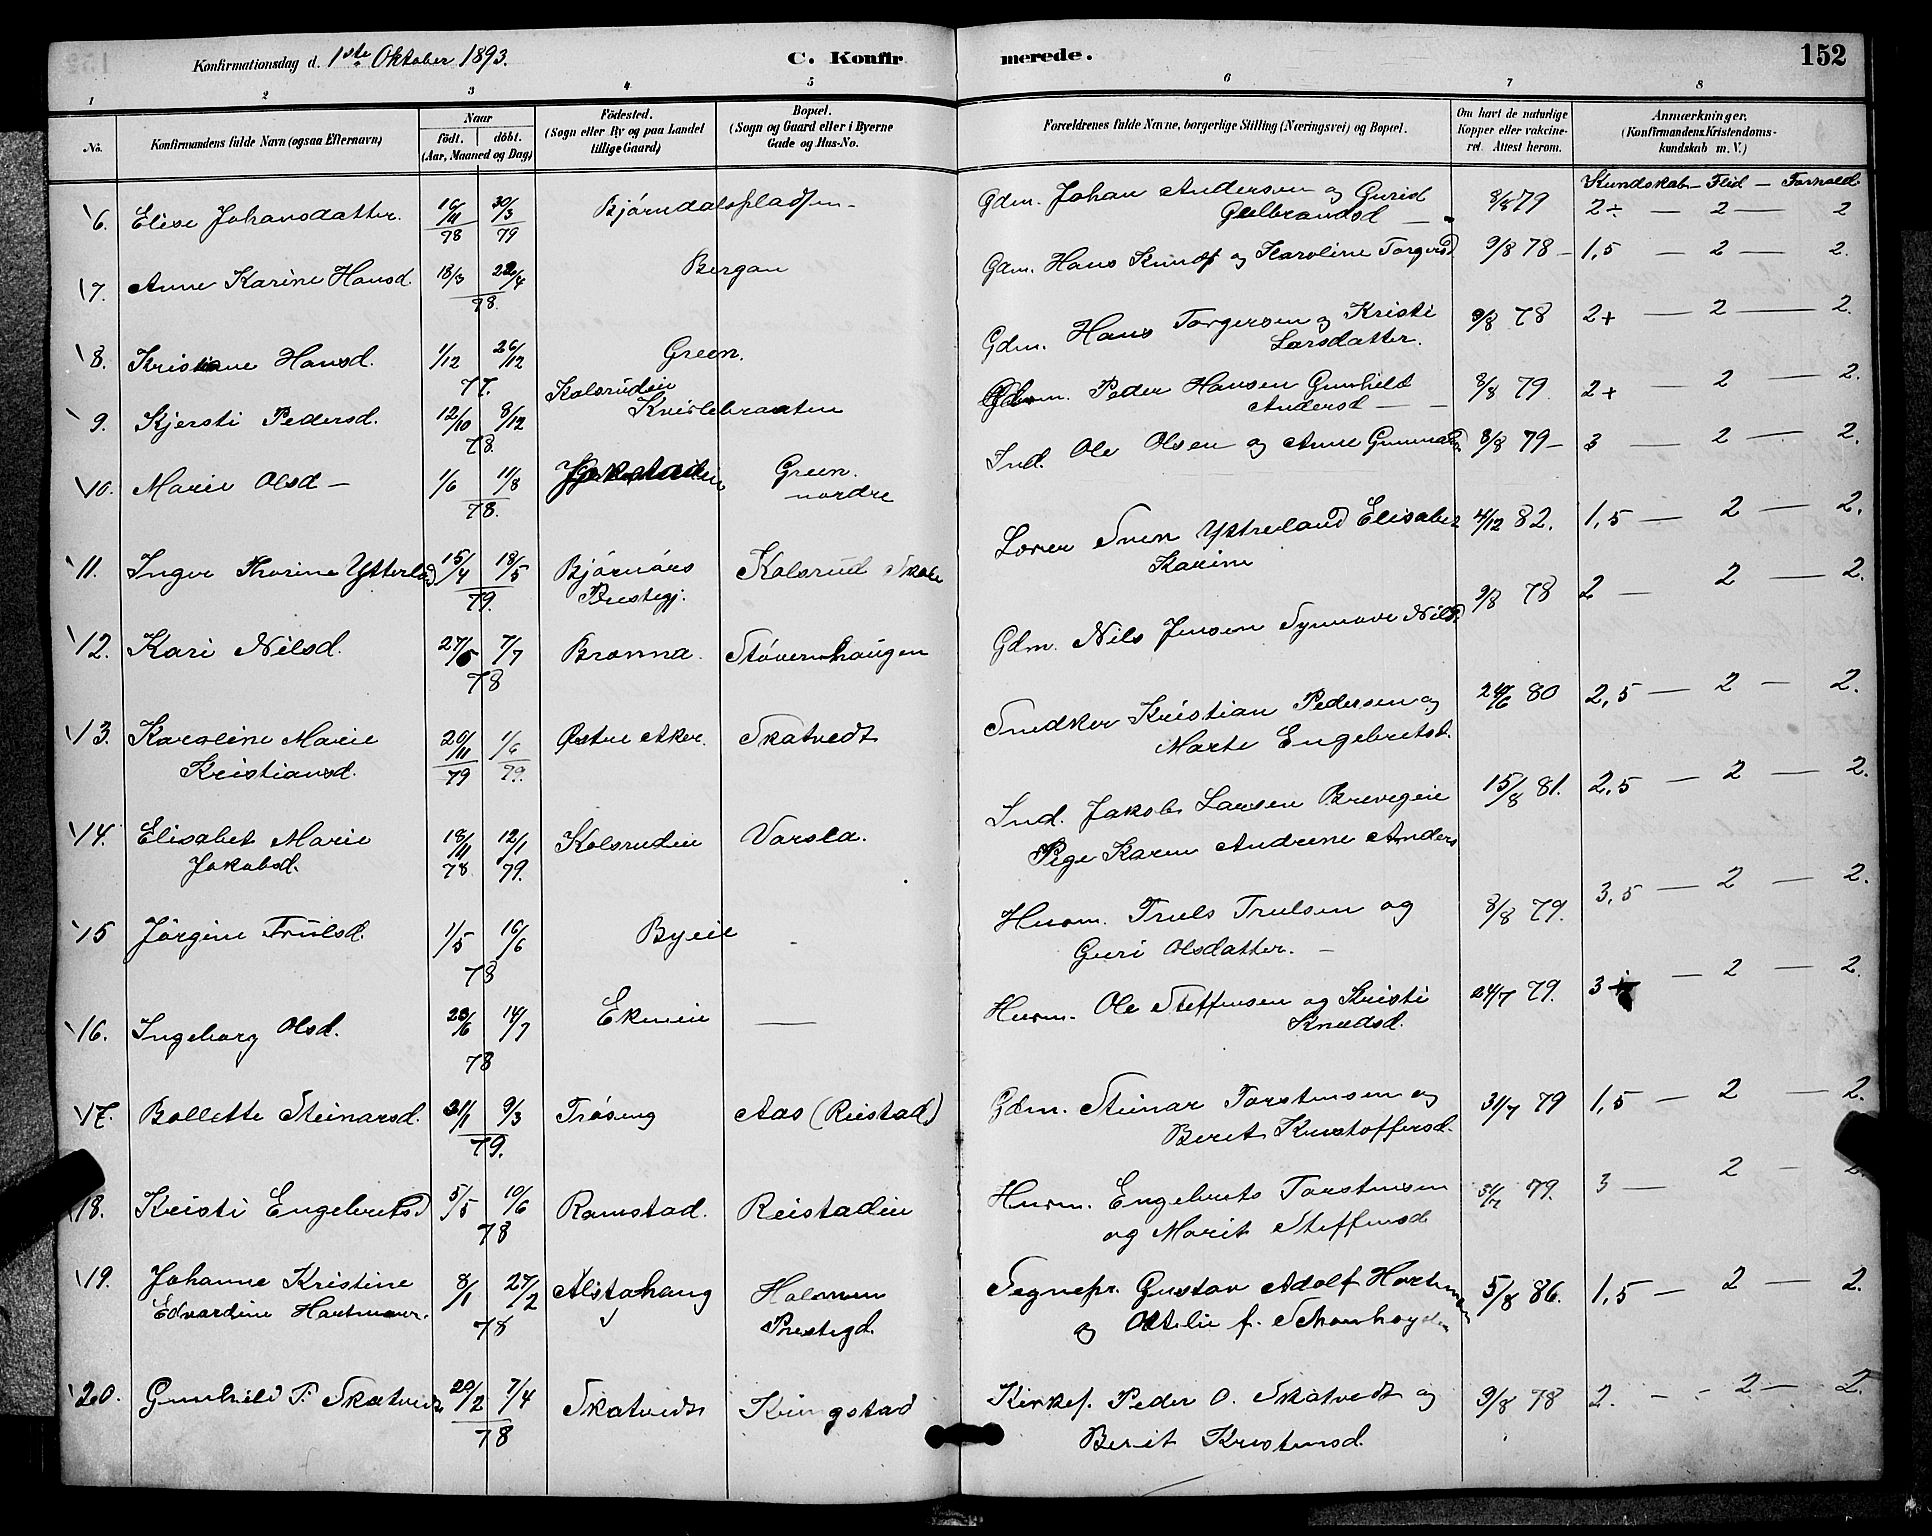 Konfirmationsdag d. 1ste Oktober 1893.
C. Konfirmerede.
152
1 2 3 4 5 6 7 8
No.
Konfirmandens fulde Navn (ogsaa Efternavn)
Naar
födt. döbt.
(Aar, Maaned og Dag)
Födested.
(Sogn eller By og paa Landet
tillige Gaard)
Bopæl.
(Sogn og Gaard eller i Byerne
Gade og Hus-No.
Forældrenes fulde Navne, borgerlige Stilling (Næringsvei) og Bopæl.
Om havt de naturlige
Kopper eller vakcine-
ret. Attest herom.
Anmærkninger.
(Konfirmandens Kristendoms-
kundskab m. V.)
Kundskab – Flid – Forhold
6. Elise Johansdatter. 16/11 78 30/3 79 Bjørndalspladsen – Gdm. Johan Andersen og Gurid
Gulbrandsd – 8/8 79 2÷ – 2 – 2
7. Anne Karine Hansd. 18/3 22/4 78. Bergan Gdm. Hans Knuds og Karoline Torgersd 9/8 78 – 1,5 – 2 – 2.
8. Kristiane Hansd. 1/12 26/12 77. Green. Gdm. Hans Torgersen og Kristi
Larsdatter. 9/8 78 2+ – 2 – 2.
9. Kjersti Pedersd. 12/10 8/12 78. Kolsrudeie
Kvislebraaten Gdm. Peder Hansen Gunhild
Andersd – 8/8 79. 2+ – 2 – 2.
10. Marie Olsd – 1/6 11/8 78. Green.
nordre Ind. Ole Olsen og Anne 8/8 79 – 3 – 2 – 2.
11. Inger Thorine 15/4 18/5 79. Bjørnørs
Prestegj. Kolsrud Skole Lærer Sven Ystreland Elisabet
Karine 4/12 82. 1,5 – 2 – 2.
12. Kari Nilsd. 27/5 7/7 78 Bronna. Støvernhaugen Gdm. Nils Jensen Synnøve Nilsd 9/8 78 2 – 2 – 2.
13. Karoline Marie
Kristiansd. 20/11 79 1/6 79. Østre Aker. Skatvedt Snedker Kristian Pedersen og
Marte Engebretsd. 24/6 80 2,5 – 2 – 2.
14. Elisabet Marie
Jakobsd. 18/11 78 12/1 79. Kolsrudeie Varsla. Ind. Jakob Larsen Brevigeie
Pige Karen Andrine Anders 15/8 81. 2,5 – 2 – 2.
15 Jørgine Trulsd. 1/5 16/6 78 Byeie Husm. Truls Trulsen og
Guri Olsdatter. – 8/8 79. 3,5 – 2 – 2.
16. Ingeborg Olsd. 23/6 14/7 78 Ekneie — Husm. Ole Steffensen og Kristi
Knudsd. 24/7 79. 3 – 2 – 2.
17. Bollette Steinarsd. 21/1 9/3 79. Trøseng Aas (Reistad) Gdm. Steinar Torstensen og
Berit Kristoffersd. 31/7 79 1,5 – 2 – 2.
18. Kristi Engebretsd 5/5 10/6 78 Ramstad. Reistadeie Husm. Engebret Torstensen
og Marit Steffensd 31/7 79. 3 – 2 – 2
19. Johanne Kristine
Edvardine Hartmann. 8/1 27/2 78 Alstahaug Holmen
Prestegd. Sognepr. Gustav Adolf Hartman
og Ottilie f. 5/8 86. 1,5 – 2 – 2.
20. Gunhild P. Skatvedt 20/2 7/4 78 Skatvedt Kringstad Kirkes. Peder O. Skatvedt og
Berit Kristensd. 9/8 78 2. – 2 – 2.